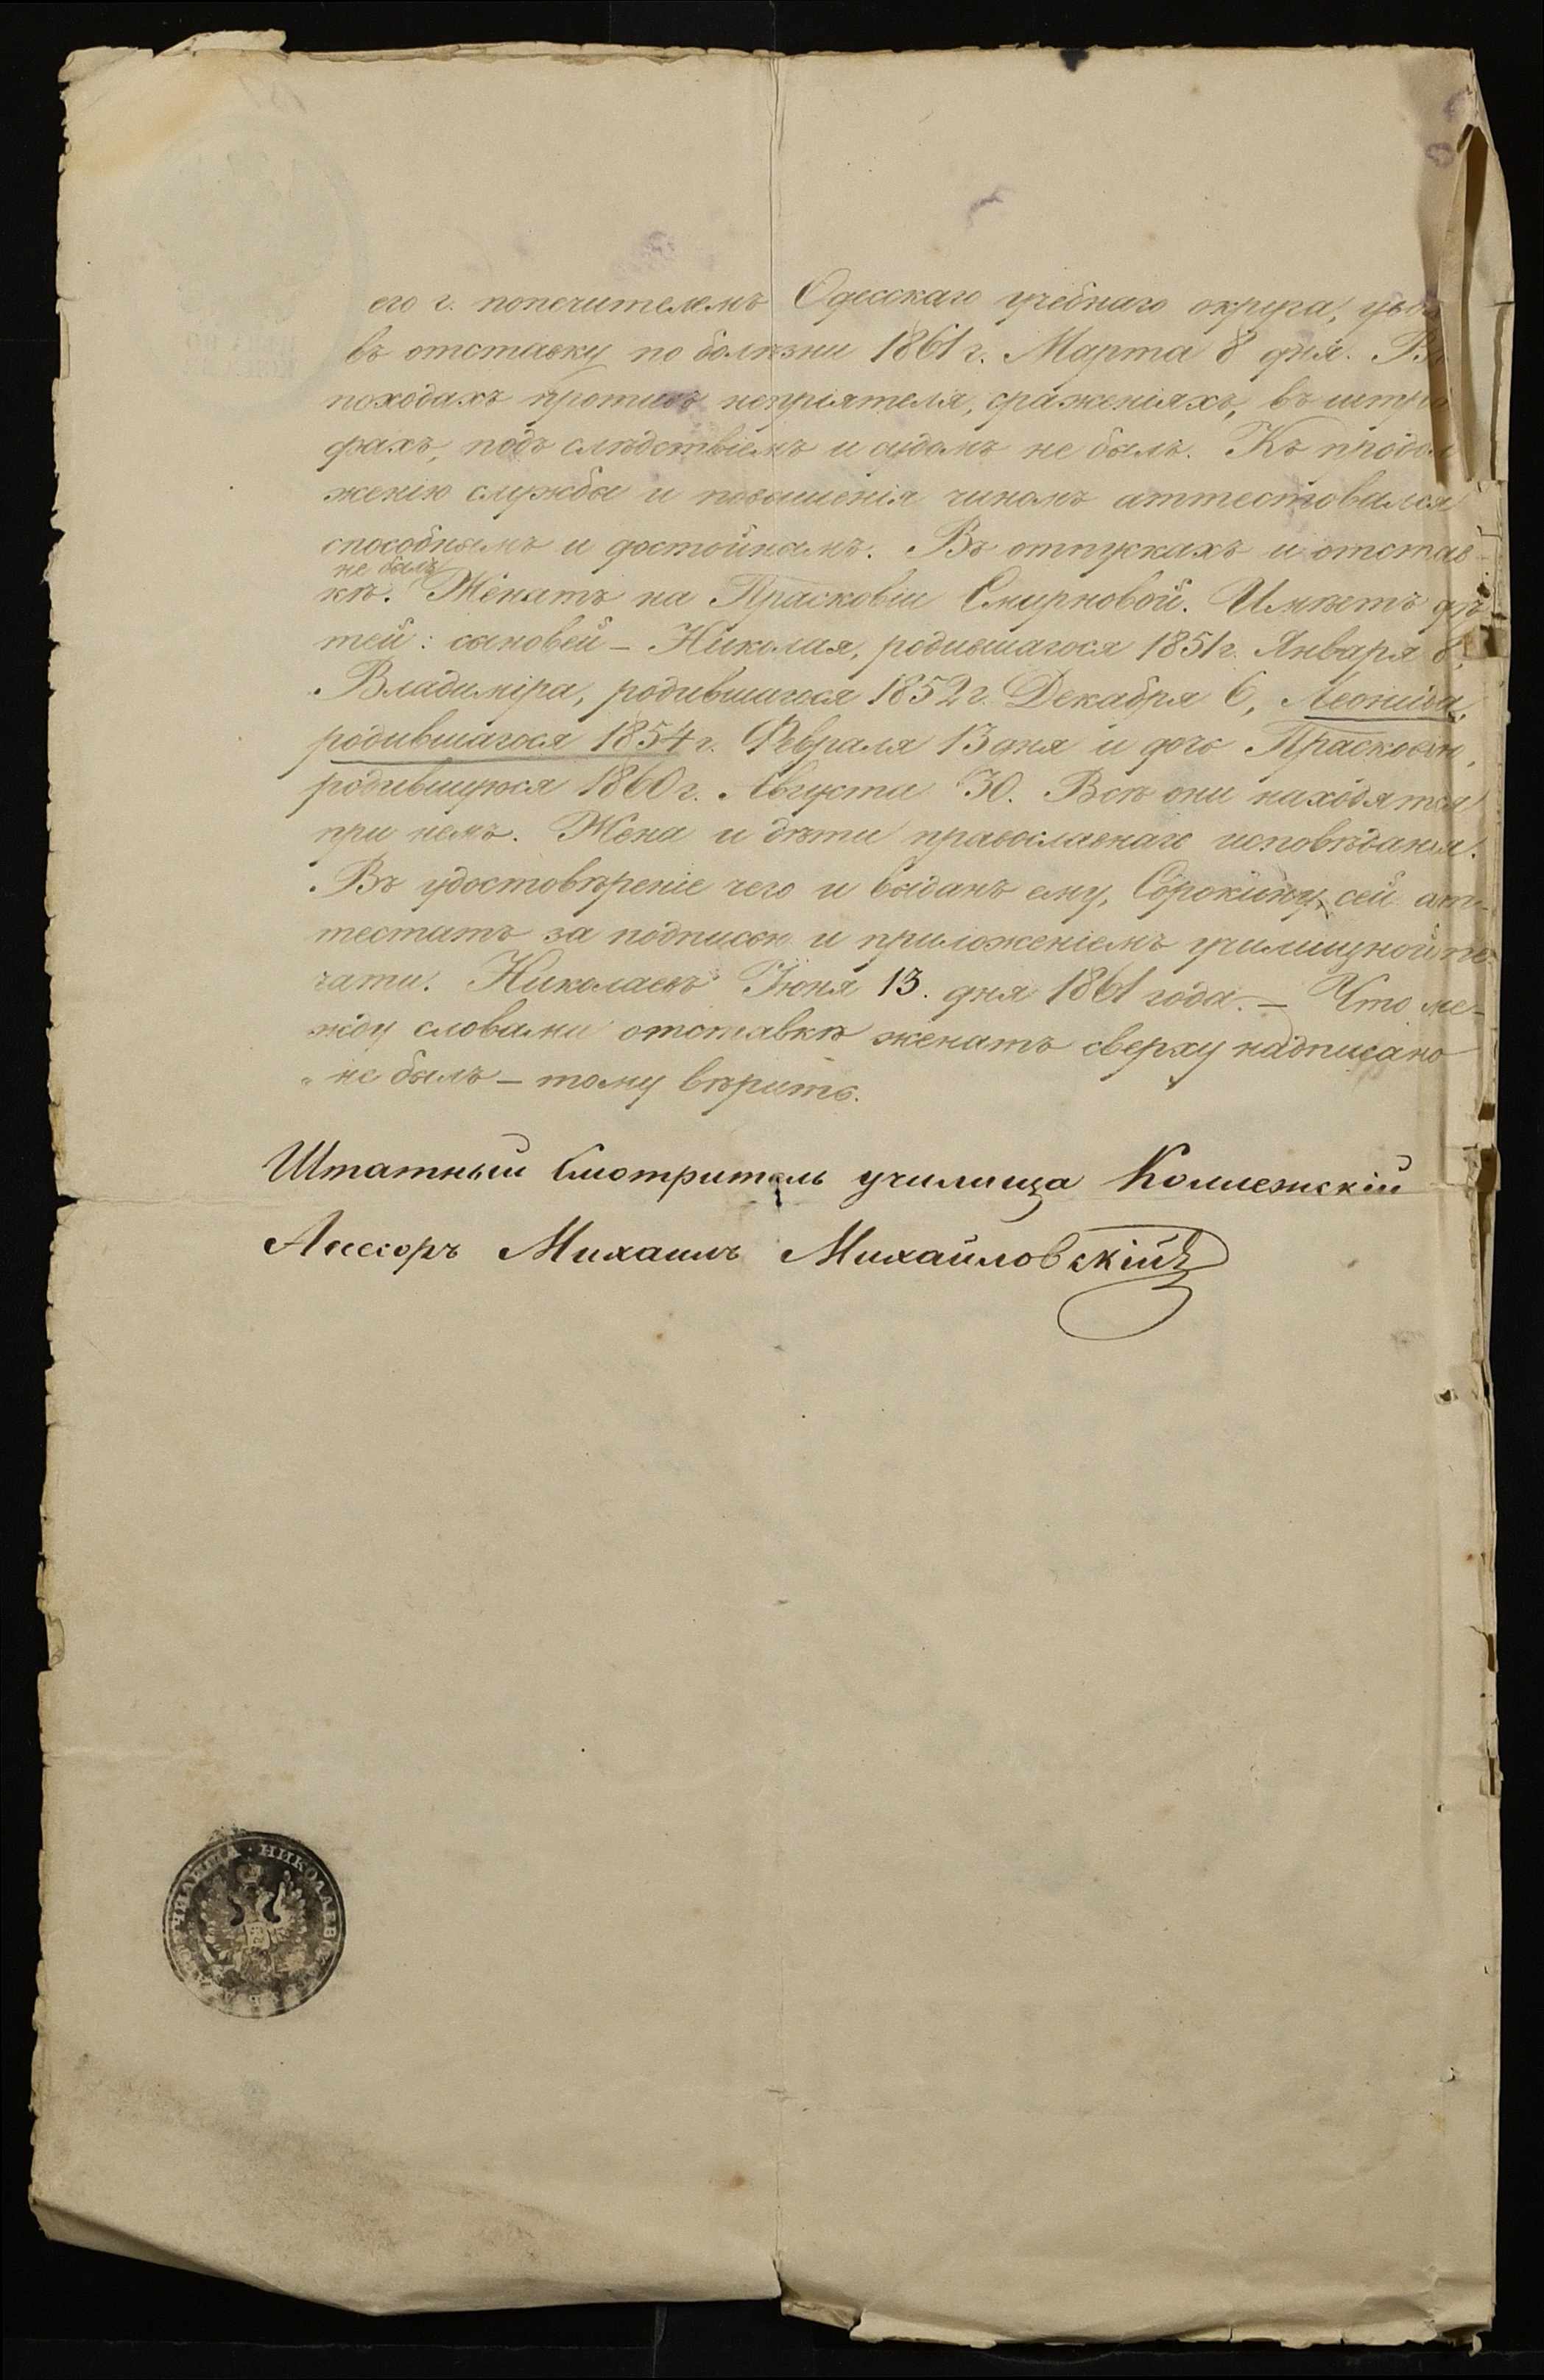 его г. попечителемъ Одесскаго учебнаго округа,
въ отставку по болѣзни 1861 г. Марта 8 дня. Въ
походахъ противъ непріятеля, сраженіяхъ, въ штра
фахъ, подъ слѣдствіемъ и судомъ не былъ. Къ продол
женію службы и повышенія чиномъ аттестовался
способнымъ и достойнымъ. Въ отпускахъ и отстав-
не былъ
кѣ. Женатъ на Прасковіи Смирновой. Имѣетъ дѣ
тей: сыновей - Николая, родившагося 1851 г. Января 8,
Владиміра, родившагося 1852 г. Декабря 6, Леонида,
родившагося 1854 г. Февраля 13 дня и дочь Прасковію,
родившуюся 1860 г. Августа 30. Всѣ они находятся
при немъ. Жена и дѣти православнаго исповѣданія.
Въ удостовѣреніе чего и выданъ ему, Сорокину, сей ат-
тестатъ за подписью и приложеніемъ училищной пе-
чати. Николаевъ Іюня 13. дня 1861 года. - Что ме-
жду словами отставкѣ женатъ сверху надписано
"не былъ - тому вѣрить.
Штатный Смотритель училища Коллежскій
Ассесоръ Михаилъ Михайловскій
УЧИЛИЩА · НИКОЛАЕВСК